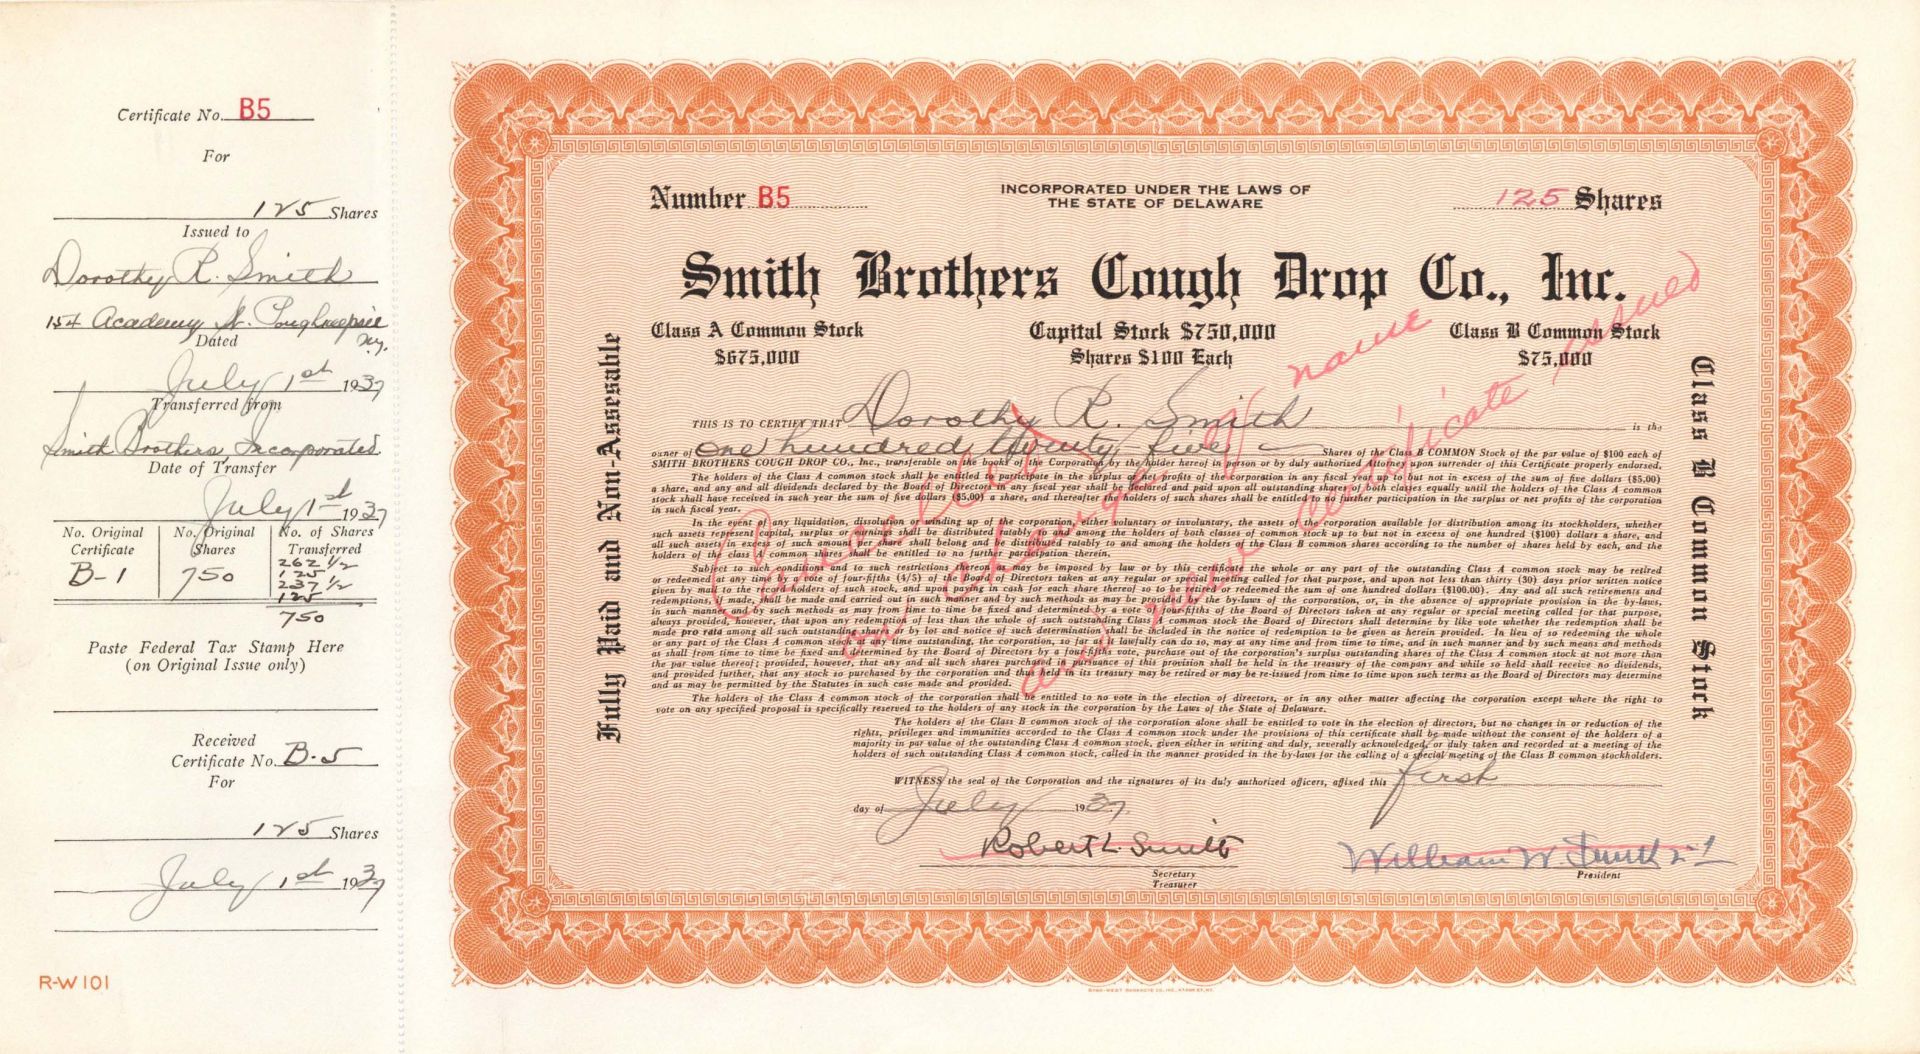 Certificate No. B5
For
125 Shares
Issued to
Dorothy R. Smith
154 Academy St. Poughkeepsie
N.Y.
Dated
July 1st 1937
Transferred from
Smith Brothers, Incorporated
Date of Transfer
July 1st 1937
No. Original Certificate
B-1
No. Original Shares
750
No. of Shares Transferred
262 1/2
125
237 1/2
125
750
Paste Federal Tax Stamp Here
(on Original Issue only)
Received
Certificate No. B-5
For
125 Shares
July 1st 1937
R-W 101
Number B5
INCORPORATED UNDER THE LAWS OF
THE STATE OF DELAWARE
125 Shares
Smith Brothers Cough Drop Co., Inc.
Class A Common Stock
$675,000
Capital Stock $750,000
Shares $100 Each
Class B Common Stock
$75,000
Fully Paid and Non-Assesable
Class B Common Stock
THIS IS TO CERTIFY THAT Dorothy R. Smith is the
owner of one hundred twenty five Shares of the Class B COMMON Stock of the par value of $100 each of
SMITH BROTHERS COUGH DROP CO., Inc., transferable on the books of the Corporation by the holder hereof in person or by duly authorized Attorney upon surrender of this Certificate properly endorsed.
The holders of the Class A common stock shall be entitled to participate in the surplus or net profits of the corporation in any fiscal year up to but not in excess of the sum of five dollars ($5.00)
a share, and any and all dividends declared by the Board of Directors in any fiscal year shall be declared and paid upon all outstanding shares of both classes equally until the holders of the Class A common
stock shall have received in such year the sum of five dollars ($5.00) a share, and thereafter the holders of such shares shall be entitled to no further participation in the surplus or net profits of the corporation
in such fiscal year.
In the event of any liquidation, dissolution or winding up of the corporation, either voluntary or involuntary, the assets of the corporation available for distribution among its stockholders, whether
such assets represent capital, surplus or earnings shall be distributed ratably to and among the holders of both classes of common stock up to but not in excess of one hundred ($100) dollars a share, and
all such assets in excess of such amount per share shall belong and be distributed ratably to and among the holders of the Class B common shares according to the number of shares held by each, and the
holders of the class A common shares shall be entitled to no further participation therein.
Subject to such conditions and to such restrictions thereon as may be imposed by law or by this certificate the whole or any part of the outstanding Class A common stock may be retired
or redeemed at any time by vote of four-fifths (4/5) of the Board of Directors taken at any regular or special meeting called for that purpose, and upon not less than thirty (30) days prior written notice
given by mail to the record holders of such stock, and upon paying in cash for each share thereof so to be retired or redeemed the sum of one hundred dollars ($100.00). Any and all such retirements and
redemptions, if made, shall be made and carried out in such manner and by such methods as may be provided by the by-laws of the corporation, or, in the absence of appropriate provision in the by-laws,
in such manner and by such methods as may from time to time be fixed and determined by a vote of four-fifths of the Board of Directors taken at any regular or special meeting called for that purpose,
always provided, however, that upon any redemption of less than the whole of such outstanding Class A common stock the Board of Directors shall determine by like vote whether the redemption shall be
made pro rata among all such outstanding shares or by lot and notice of such determination shall be included in the notice of redemption to be given as herein provided. In lieu of so redeeming the whole
or any part of the Class A common stock at any time outstanding, the corporation, so far as it lawfully can do so, may at any time and from time to time, and in such manner and by such means and methods
as shall from time to time be fixed and determined by the Board of Directors by a four-fifths vote, purchase out of the corporation's surplus outstanding shares of the Class A common stock at not more than
the par value thereof; provided, however, that any and all such shares purchased in pursuance of this provision shall be held in the treasury of the company and while so held shall receive no dividends,
and provided further, that any stock so purchased by the corporation and thus held in its treasury may be retired or may be re-issued from time to time upon such terms as the Board of Directors may determine
and as may be permitted by the Statutes in such case made and provided.
The holders of the Class A common stock of the corporation shall be entitled to no vote in the election of directors, or in any other matter affecting the corporation except where the right to
vote on any specified proposal is specifically reserved to the holders of any stock in the corporation by the Laws of the State of Delaware.
The holders of the Class B common stock of the corporation alone shall be entitled to vote in the election of directors, but no changes in or reduction of the
rights, privileges and immunities accorded to the Class A common stock under the provisions of this certificate shall be made without the consent of the holders of a
majority in par value of the outstanding Class A common stock, given either in writing and duly, severally acknowledged, or duly taken and recorded at a meeting of the
holders of such outstanding Class A common stock, called in the manner provided in the by-laws for the calling of a special meeting of the Class B common stockholders.
WITNESS the seal of the Corporation and the signatures of its duly authorized officers, affixed this first
day of July 1937.
Robert L. Smith
Secretary
Treasurer
William W. Smith 2nd
President
Cancelled
on change of name
and new certificate issued